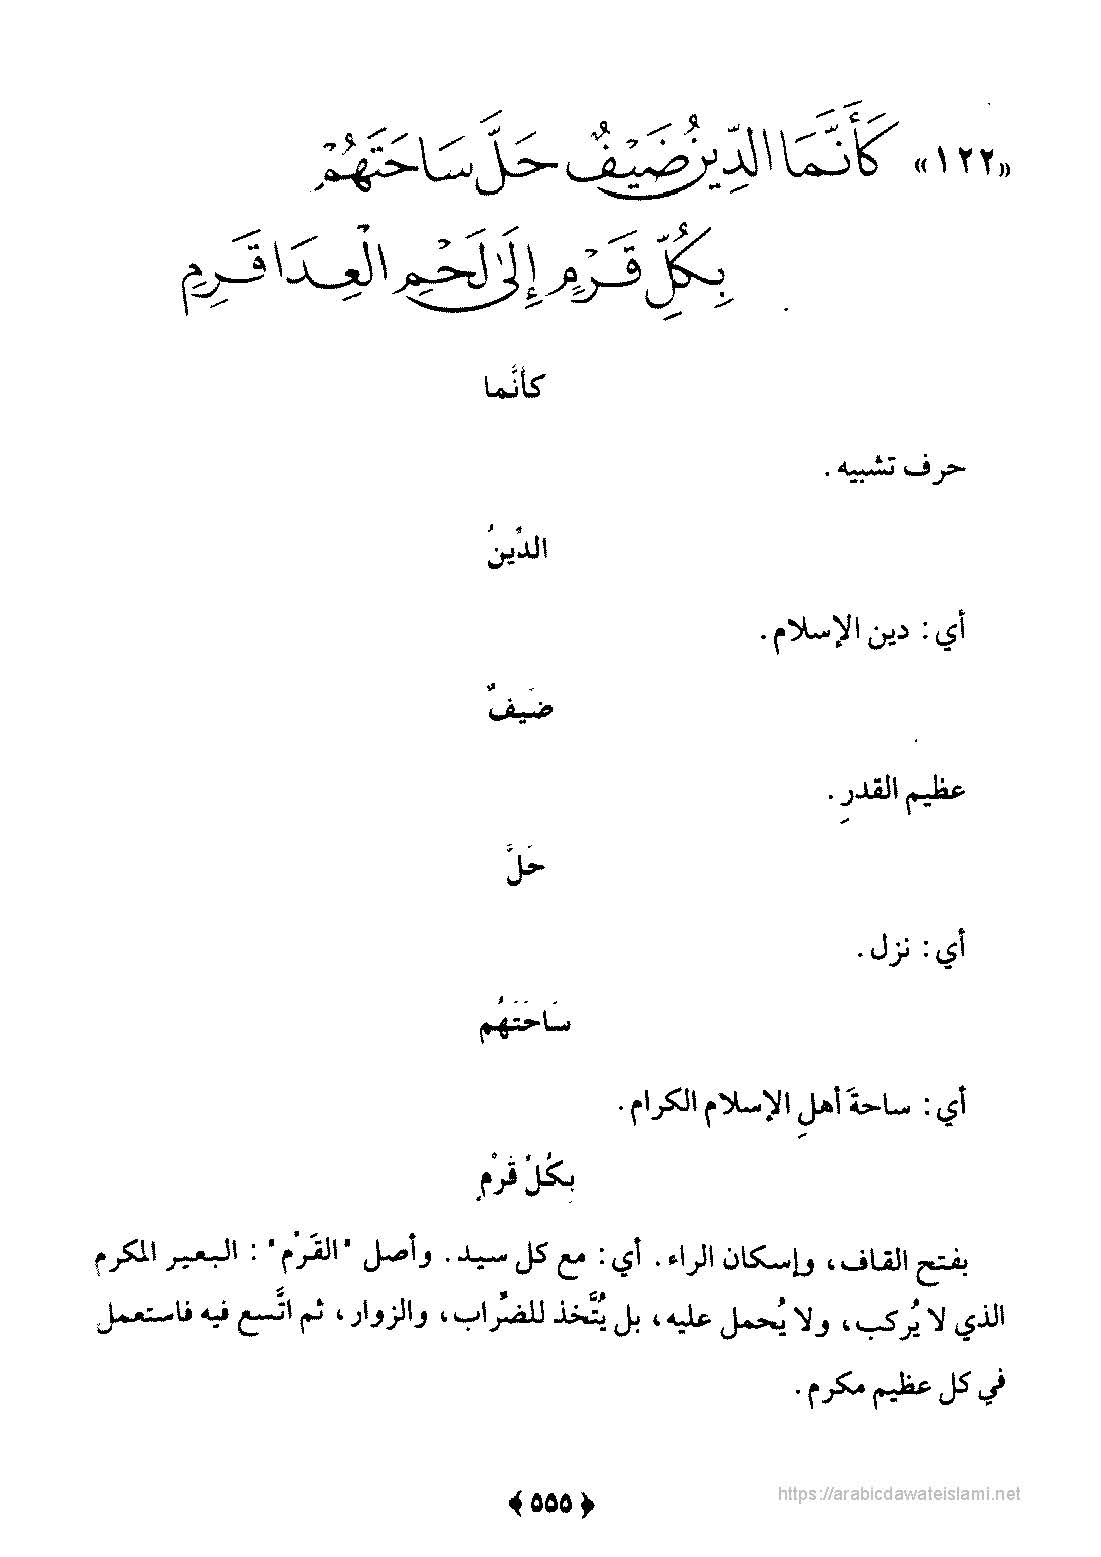 «١٢٢» كَأَنَّمَا الدِّينُ ضَيْفٌ حَلَّ سَاحَتَهُمْ
بِكُلِّ قَرْمٍ إِلَىٰ لَحْمِ الْعِدَا قَرِمِ
كأنَّما
حرف تشبيه .
الدِّينُ
أي : دين الإسلام .
ضَيفٌ
عظيم القدرِ .
حَلَّ
أي : نزل .
سَاحَتَهُم
أي : ساحةَ أهلِ الإسلام الكرام .
بِكُلِّ قَرْمٍ
بفتح القاف ، وإسكان الراء . أي : مع كل سيد . وأصل "القَرْم" : البعير المكرم
الذي لا يُركب ، ولا يُحمل عليه ، بل يُتَّخذ للضِّراب ، والزوار ، ثم اتَّسع فيه فاستعمل
في كل عظيم مكرم .
﴿ ٥٥٥ ﴾
https://arabicdawateislami.net